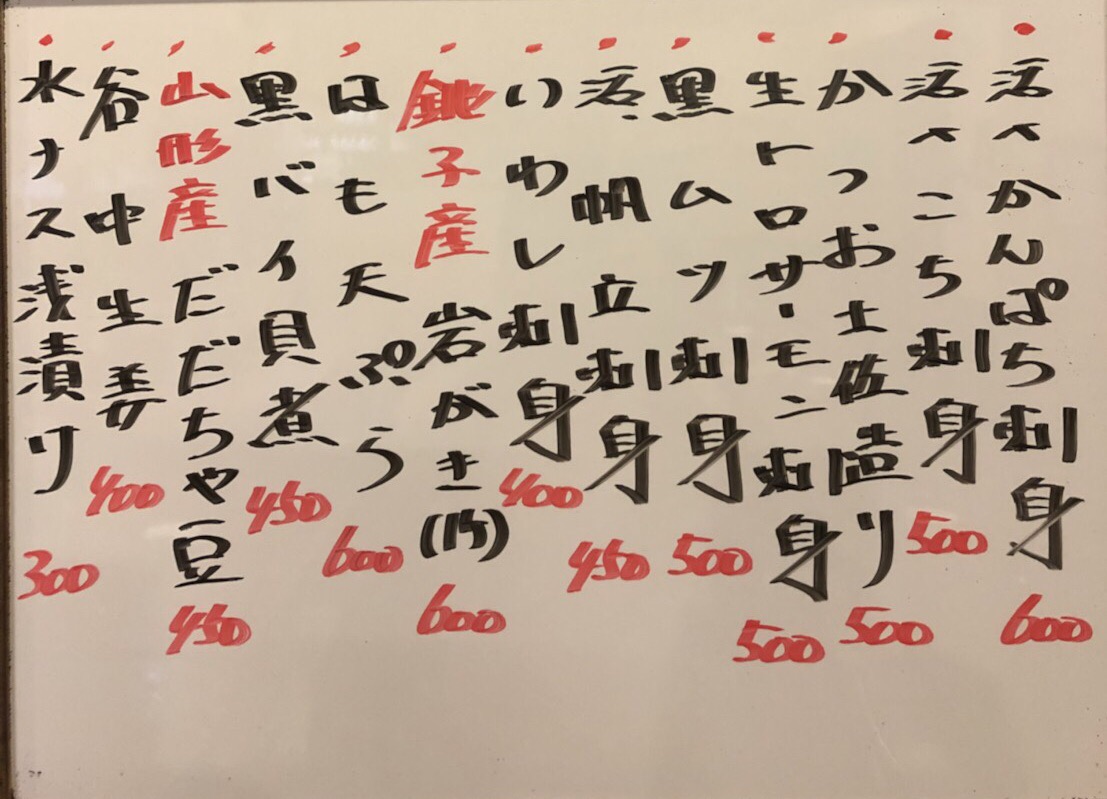 ・活〆かんぱち刺身 600
・活〆こち刺身 500
・かつお土佐造り 500
・生トロサーモン刺身 500
・黒ムツ刺身 500
・活帆立刺身 450
・いわし刺身 400
・銚子産岩がき(1ケ) 600
・はも天ぷら 600
・黒バイ貝煮 450
・山形産だだちゃ豆 450
・谷中生姜 400
・水ナス浅漬け 300